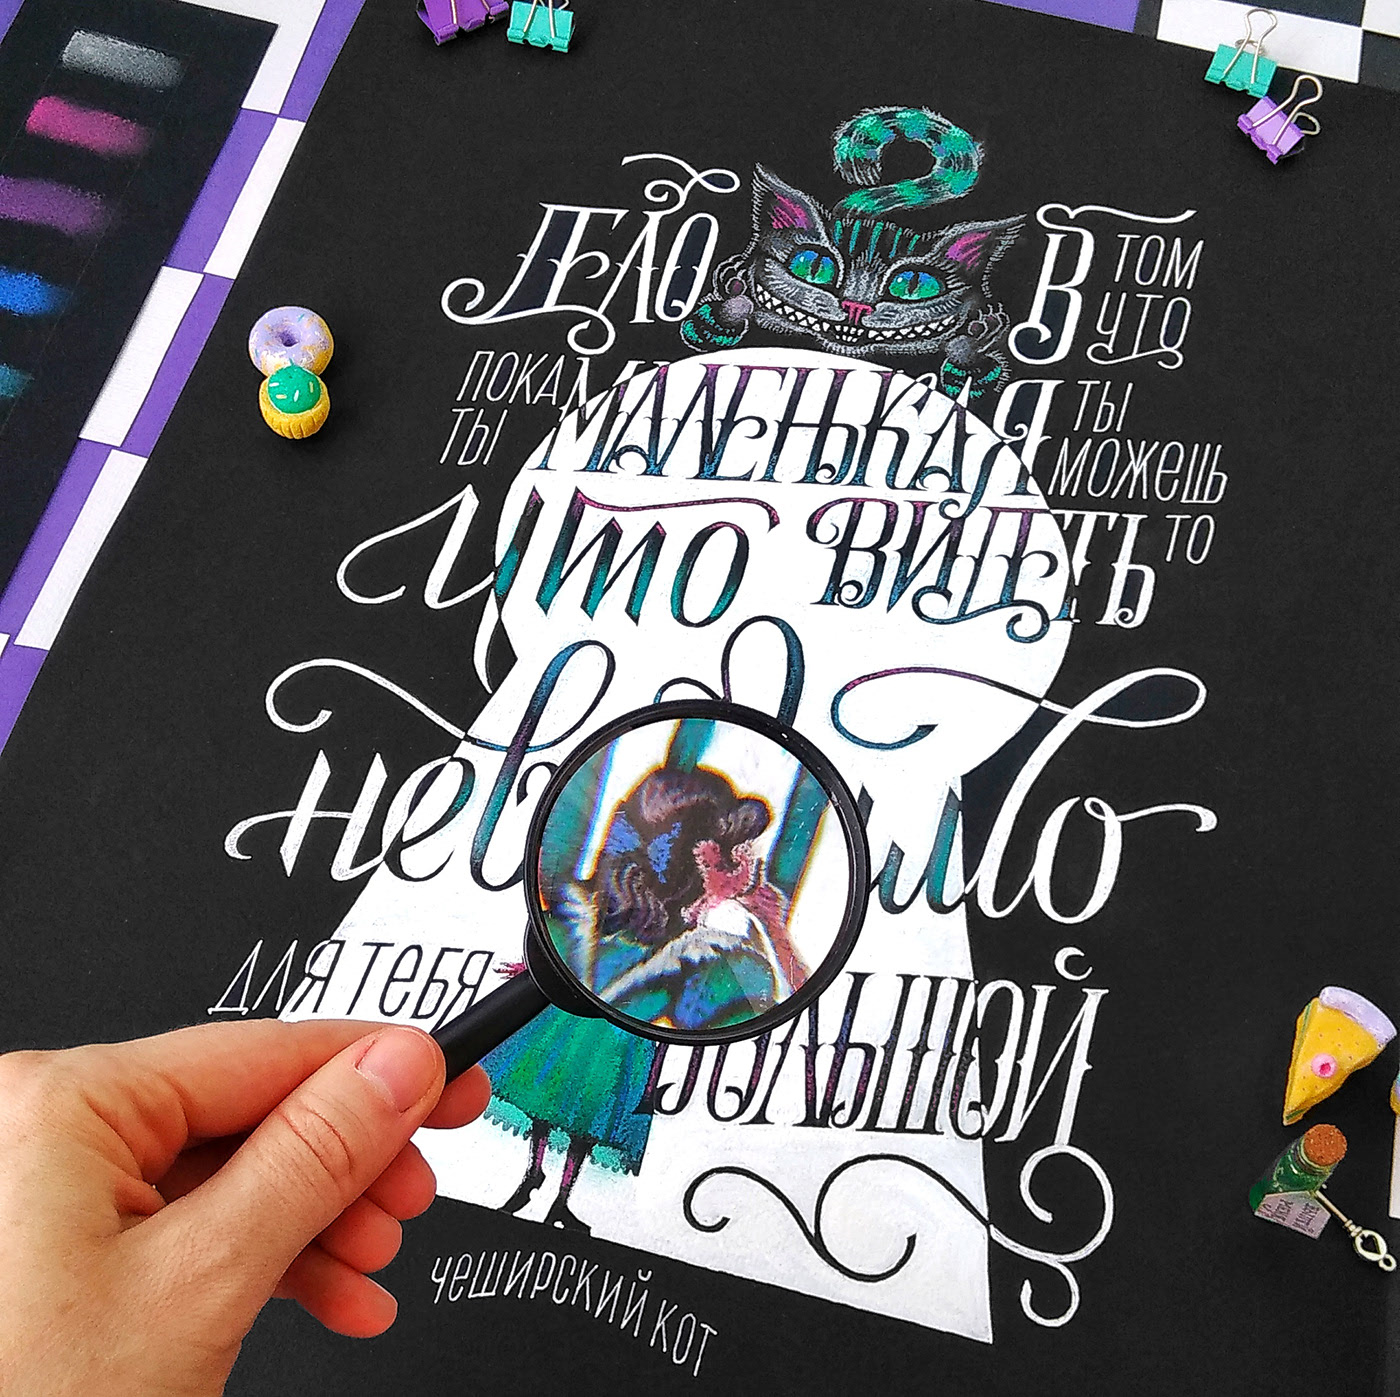 ДЕЛО В ТОМ ЧТО
ПОКА ТЫ МАЛЕНЬКАЯ ТЫ МОЖЕШЬ
что ВИДЕТЬ ТО
невидимо
ДЛЯ ТЕБЯ БОЛЬШОЙ
ЧЕШИРСКИЙ КОТ